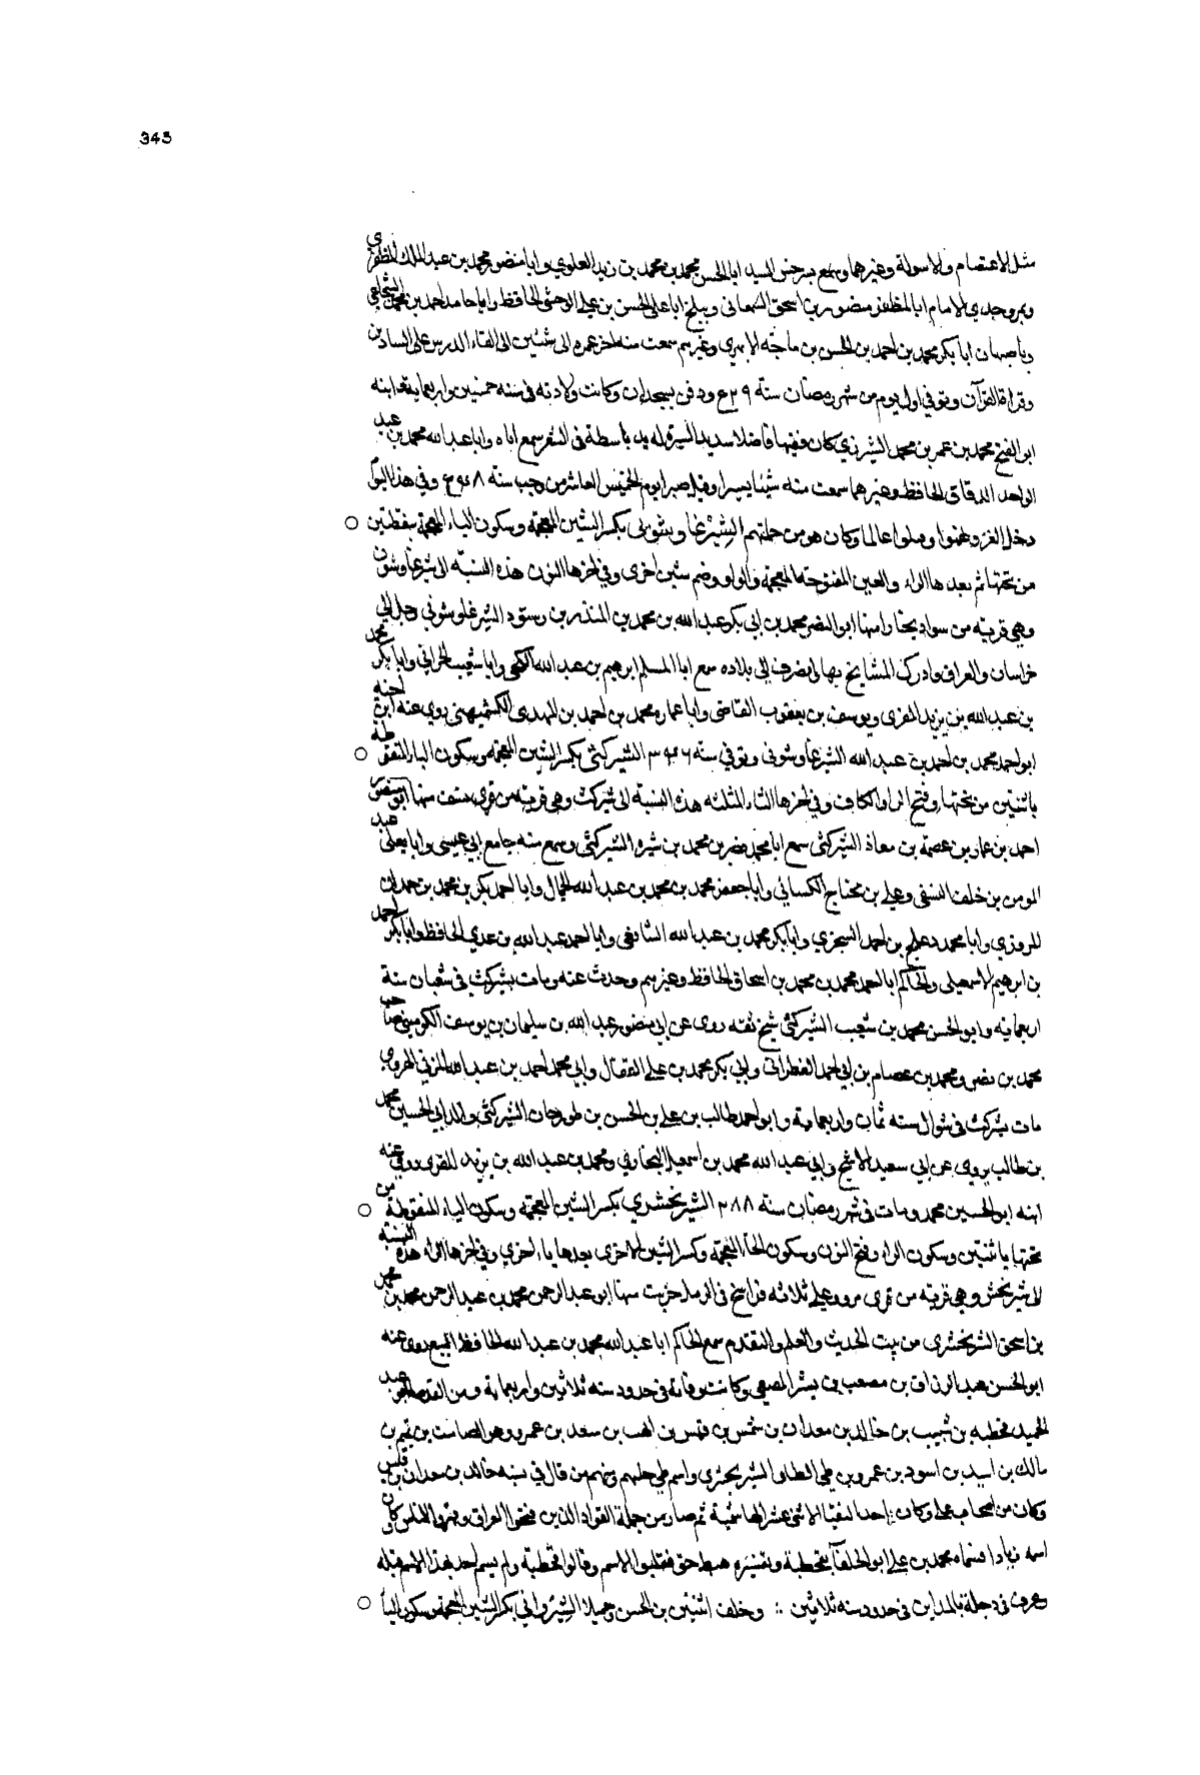 343
مثل الاعتصام والاسولة وغيرهما وسمع بسرخس السيد ابا الحسن محمد بن محمد بن زيد العلوي وابا منصور محمد بن عبد الملك المظفري
وبمرو جدي الامام ابا المظفر منصور بن اسحق السمعاني وببلخ ابا علي الحسن بن علي الوخشي الحافظ وابا حامد احمد بن محمد الشجاعي
وباصبهان ابا بكر محمد بن احمد بن الحسن بن ماجه الابهري وغيرهم سمعت منه اخر عمره الى شئين الى القاء الدرس على
وقراة القرآن وتوفي اول يوم من شهر رمضان سنة ٥٢٩ ودفن وكانت ولادته في سنه خمسين واربعماية وابنه
ابو الفتح محمد بن عمر بن محمد الشيرزي كان فقيها فاضلا سديد السيرة له يد باسطة في الشعر سمع اباه وابا عبد الله محمد بن عبد
الواحد الدقاق الحافظ وغيرهما سمعت منه شيئا يسيرا وقتل صبرا يوم الخميس العاشر من رجب سنة وفي هذا اليوم
دخل الغز وقتلوا عالما وكان هو من جملتهم الشيرغاوشوني بكسر الشين المعجمة وسكون الياء المعجمة بنقطتين
من تحتها ثم بعدها الراء والغين المفتوحة المعجمة والواو وضم شين اخرى وفي اخرها النون هذه النسبة الى شيرغاوشون
وهي قرية من سواد بخارا منها ابو النصر محمد بن ابي بكر عبد الله بن محمد بن المنذر بن وستود الشيرغاوشوني رحل الى
خراسان والعراق وادرك المشايخ بها وانصرف الى بلاده سمع ابا المسلم ابرهيم بن عبد الله الكجي وابا شعيب الحراني وابا بكر محمد
بن عبد الله بن يزيد المقري ويوسف بن يعقوب القاضي وابا عماره محمد بن احمد بن المهدي الكشميهني روى عنه ابن اخته
ابو احمد محمد بن احمد بن عبد الله الشيرغاوشوني وتوفي سنة ٣٤٦ الشيركثي بكسر الشين المعجمة وسكون الياء المنقوطة
باثنتين من تحتها وفتح الراء والكاف وفي اخرها الثاء المثلثه هذه النسبة الى شيركث وهي قرية من قرى نسف منها ابو نصر
احمد بن عمار بن عصمة بن معاذ الشيركثي سمع ابا محمد نضر بن محمد بن شيره الشيركثي وسمع منه جامع ابي عيسى وابا يعلى عبد
المومن بن خلف النسفي وعلي بن محتاج الكساني وابا جعفر محمد بن محمد بن عبد الله الجمال وابا احمد بكر بن محمد بن حمدان
المروزي وابا محمد دعلج بن احمد السجزي وابا بكر محمد بن عبد الله الشافعي وابا احمد عبد الله بن عدي الحافظ وابا بكر احمد
بن ابرهيم الاسمعيلي والحاكم ابا احمد محمد بن محمد بن اسحاق الحافظ وغيرهم وحدث عنه ومات بشيركث في شعبان سنة
اربعمائة وابو الحسن محمد بن شعيب الشيركثي شيخ ثقه روى عن ابي منصور عبد الله بن سليمان بن يوسف الكرميني صاحب
محمد بن نصر ومحمد بن عصام بن ابي احمد القطراني وابي بكر محمد بن علي القفال وابي محمد احمد بن عبد الله المزني الهروي
مات بشيركث في شوال سنه ثمان واربعماية وابو احمد طالب بن علي بن الحسن بن الشيركثي والد ابي الحسين محمد
بن طالب يروي عن ابي سعيد الاشج وابي عبد الله محمد بن اسمعيل البخاري ومحمد بن عبد الله بن يزيد المقري روى عنه
ابنه ابو الحسين محمد ومات في شهر رمضان سنة ٢٨٨ الشيرنخشيري بكسر الشين المعجمة وسكون الياء المنقوطة من
تحتها باثنتين وسكون الراء وفتح النون وسكون الخاء المعجمة وكسر الشين الاخرى بعدها ياء اخرى وفي اخرها الراء هذه النسبة
الى شيرنخشير وهي قرية من قرى مرو على ثلاثه فراسخ في الرمل خربت منها ابو عبد الرحمن محمد بن عبد الرحمن محمد بن محمد
بن اسحق الشيرنخشيري من بيت الحديث والعلم والتقدم سمع الحاكم ابا عبد الله محمد بن عبد الله الحافظ البيع روى عنه
ابو الحسن عبد الرزاق بن مصعب بن بشر المصعبي وكانت وفاته في حدود سنه ثلاثين واربعماية ومن القدماء عبد
الحميد قحطبه بن شبيب بن خالد بن معدان بن شمس بن قيس بن بن سعد بن عمرو وهو الصامت بن تميم بن
مالك بن اسيد بن اسود بن عمرو بن طي الطائي الشيرنخشيري واسم طي جلهم ومنهم من قال في نسبه خالد بن معدان بن قيس
وكان من اصحاب علي وكان احد النقبا الاثني عشر الهاشمية ثم صار من جملة القواد الذين فتحوا العراق وقهروا الناس كان
اسمه زيادا فسماه محمد بن علي ابو الخلفاء قحطبة وتفسيره هبط حق فقلبوا الاسم وقالوا قحطبة ولم يسم احد بهذا الاسم قبله
وغرق في دجلة بالمداين في حدود سنه ثلاثين وخلف اثنين بن الحسن وحميلا الشيرواني بكسر الشين المعجمة وسكون اليا